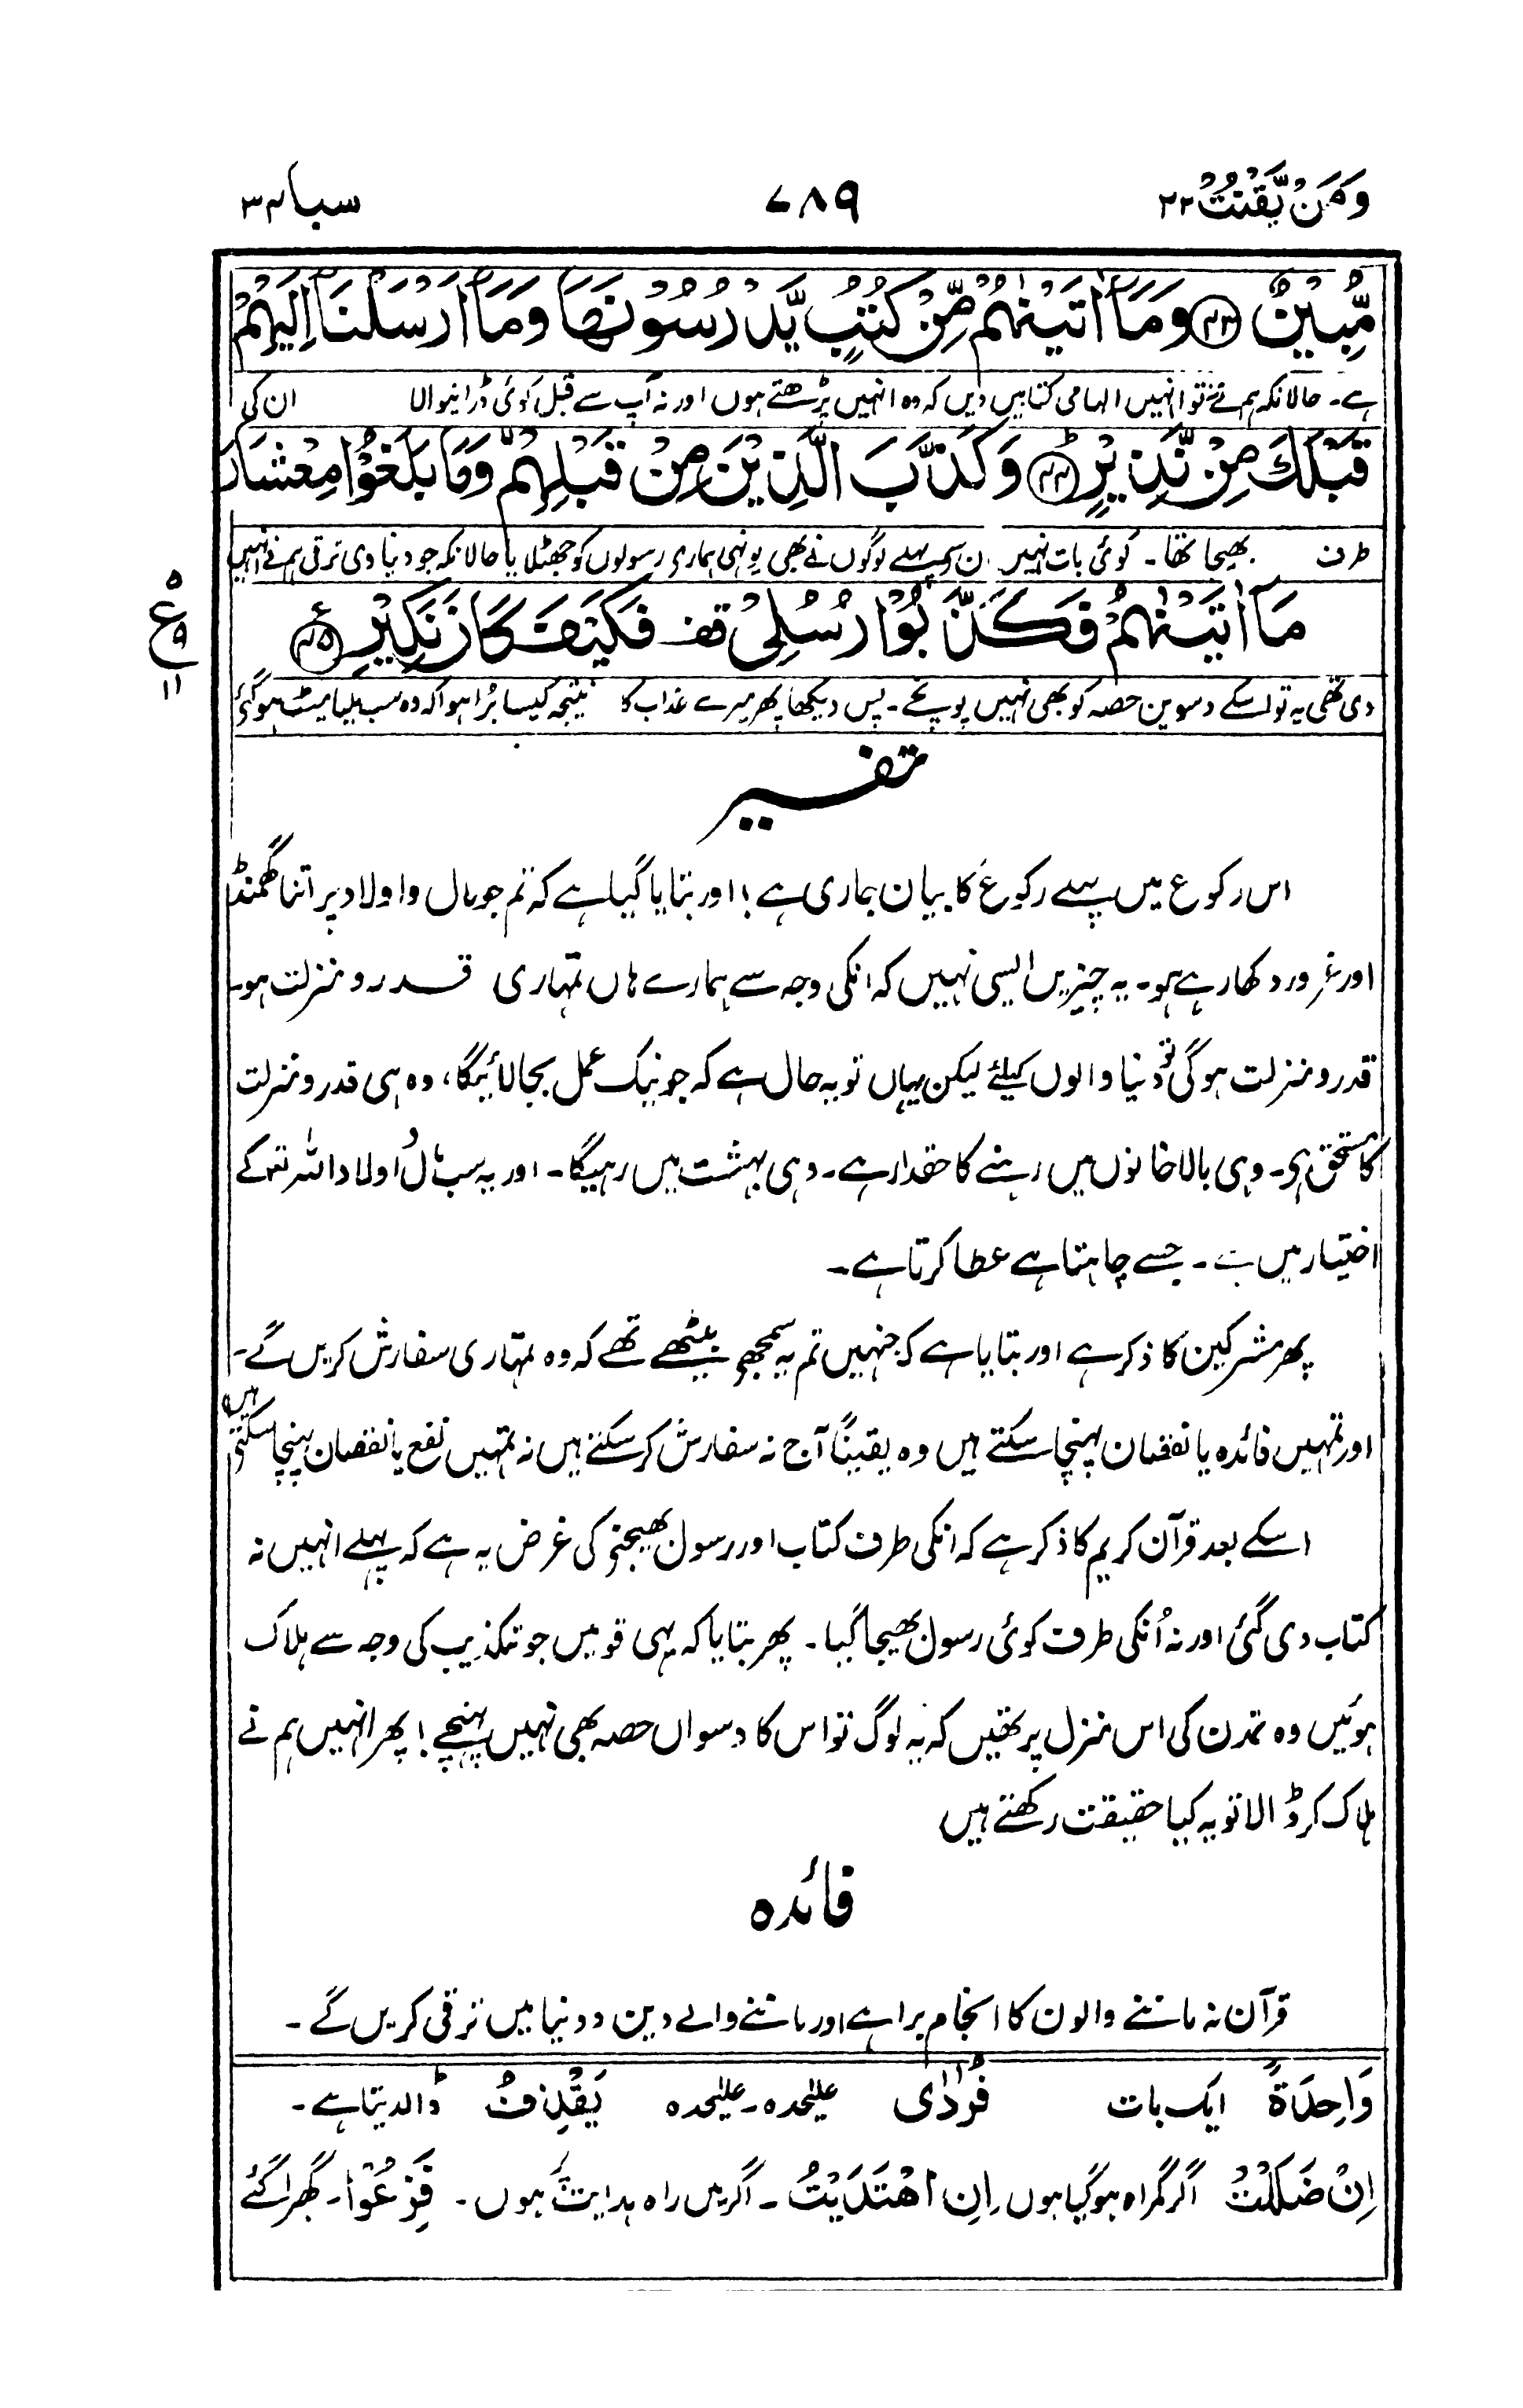 وَمَنْ يَّقْنُتْ ۲۲ ۷۸۹ سبا ۳۴
مُّبِيْنٌ ﴿۴۳﴾ وَمَآ اٰتَيْنٰهُمْ مِّنْ كُتُبٍ يَّدْرُسُوْنَهَا وَمَآ اَرْسَلْنَآ اِلَيْهِمْ
ہے۔ حالانکہ ہم نے تو انہیں الہامی کتابیں دیں کہ وہ انہیں پڑھتے ہوں اور نہ آپ سے قبل کوئی ڈرانیوالا ان کی
قَبْلَكَ مِنْ نَّذِيْرٍ ﴿۴۴﴾ وَكَذَّبَ الَّذِيْنَ مِنْ قَبْلِهِمْ وَمَا بَلَغُوْا مِعْشَارَ
طرف بھیجا تھا۔ کوئی بات نہیں ان سے پہلے لوگوں نے بھی یونہی ہماری رسولوں کو جھٹلایا حالانکہ جو دنیاوی ترقی ہم نے انہیں
مَآ اٰتَيْنٰهُمْ فَكَذَّبُوْا رُسُلِيْ قف فَكَيْفَ كَانَ نَكِيْرِ ﴿۴۵﴾ ع
۵
ع
۹
۱۱
دی تھی یہ تو اسکے دسویں حصہ کو بھی نہیں پہونچے۔ پس دیکھا پھر میرے عذاب کا نتیجہ کیسا بُرا ہوا کہ وہ سب ملیا میٹ ہوگئے
تفسیر
اس رکوع میں پہلے رکوع کا بیان جاری ہے! اور بتایا گیا ہے کہ تم جو مال و اولاد پر اتنا گھمنڈ
اور غرور دکھا رہے ہو۔ یہ چیزیں ایسی نہیں کہ انکی وجہ سے ہمارے ہاں تمہاری قدر و منزلت ہو۔
قدر و منزلت ہوگی تو دُنیا والوں کیلئے لیکن یہاں تو یہ حال ہے کہ جو نیک عمل بجا لائیگا، وہ ہی قدر و منزلت
کا مستحق ہی۔ وہی بالا خانوں میں رہنے کا حقدار ہے۔ وہی بہشت میں رہیگا۔ اور یہ سب مال و اولاد اللہ تعہ کے
اختیار میں ہے۔ جسے چاہتا ہے عطا کرتا ہے۔
پھر مشرکین کا ذکر ہے اور بتایا ہے کہ جنہیں تم یہ سمجھے بیٹھے تھے کہ وہ تمہاری سفارش کریں گے۔
اور تمہیں فائدہ یا نقصان پہنچا سکتے ہیں وہ یقیناً آج نہ سفارش کر سکتے ہیں نہ تمہیں نفع یا نقصان پہنچا سکتے ہیں
اسکے بعد قرآن کریم کا ذکر ہے کہ انکی طرف کتاب اور رسول بھیجنے کی غرض یہ ہے کہ پہلے انہیں نہ
کتاب دی گئی اور نہ اُنکی طرف کوئی رسول بھیجا گیا۔ پھر بتایا کہ پہلی قومیں جو تکذیب کی وجہ سے ہلاک
ہوئیں وہ تمدن کی اس منزل پر تھیں کہ یہ لوگ تو اس کا دسواں حصہ بھی نہیں پہنچے! پھر انہیں ہم نے
ہلاک کر ڈالا تو یہ کیا حقیقت رکھتے ہیں
فائدہ
قرآن نہ ماننے والوں کا انجام برا ہے اور ماننے والے دین و دنیا میں ترقی کریں گے۔
وَاحِدَةً ایک بات فُرَادٰى علیٰحدہ۔ علیٰحدہ يَقْذِفُ ڈالدیتا ہے۔
اِنْ ضَلَلْتُ اگر گمراہ ہوگیا ہوں اِنِ اهْتَدَيْتُ۔ اگر میں راہ ہدایت پر ہوں۔ فَزِعُوْا۔ گھبرا گئے